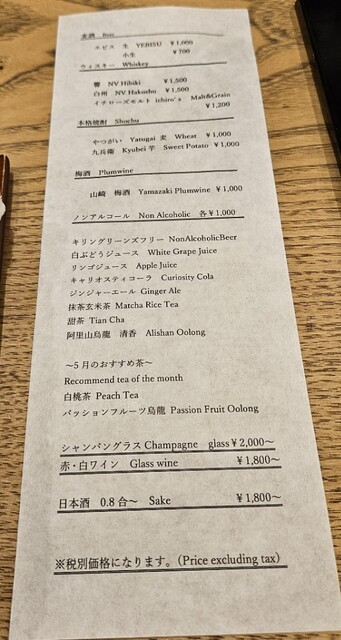 麦酒　Beer
ヱビス 生 YEBISU ¥1,000
小生 ¥700
ウィスキー Whiskey
響 NV Hibiki ¥1,500
白州 NV Hakushu ¥1,500
イチローズモルト ichiro's Malt&Grain
¥1,200
本格焼酎 Shochu
やつがい Yatugai 麦 Wheat ¥1,000
九兵衛 Kyubei 芋 Sweet Potato ¥1,000
梅酒 Plumwine
山崎 梅酒 Yamazaki Plumwine ¥1,000
ノンアルコール Non Alcoholic 各¥1,000
キリングリーンズフリー NonAlcoholicBeer
白ぶどうジュース White Grape Juice
リンゴジュース Apple Juice
キャリオスティコーラ Curiosity Cola
ジンジャーエール Ginger Ale
抹茶玄米茶 Matcha Rice Tea
甜茶 Tian Cha
阿里山烏龍 清香 Alishan Oolong
～5月のおすすめ茶～
Recommend tea of the month
白桃茶 Peach Tea
パッションフルーツ烏龍 Passion Fruit Oolong
シャンパングラス Champagne glass¥2,000～
赤・白ワイン Glass wine ¥1,800～
日本酒 0.8 合～ Sake ¥1,800～
※税別価格になります。(Price excluding tax)